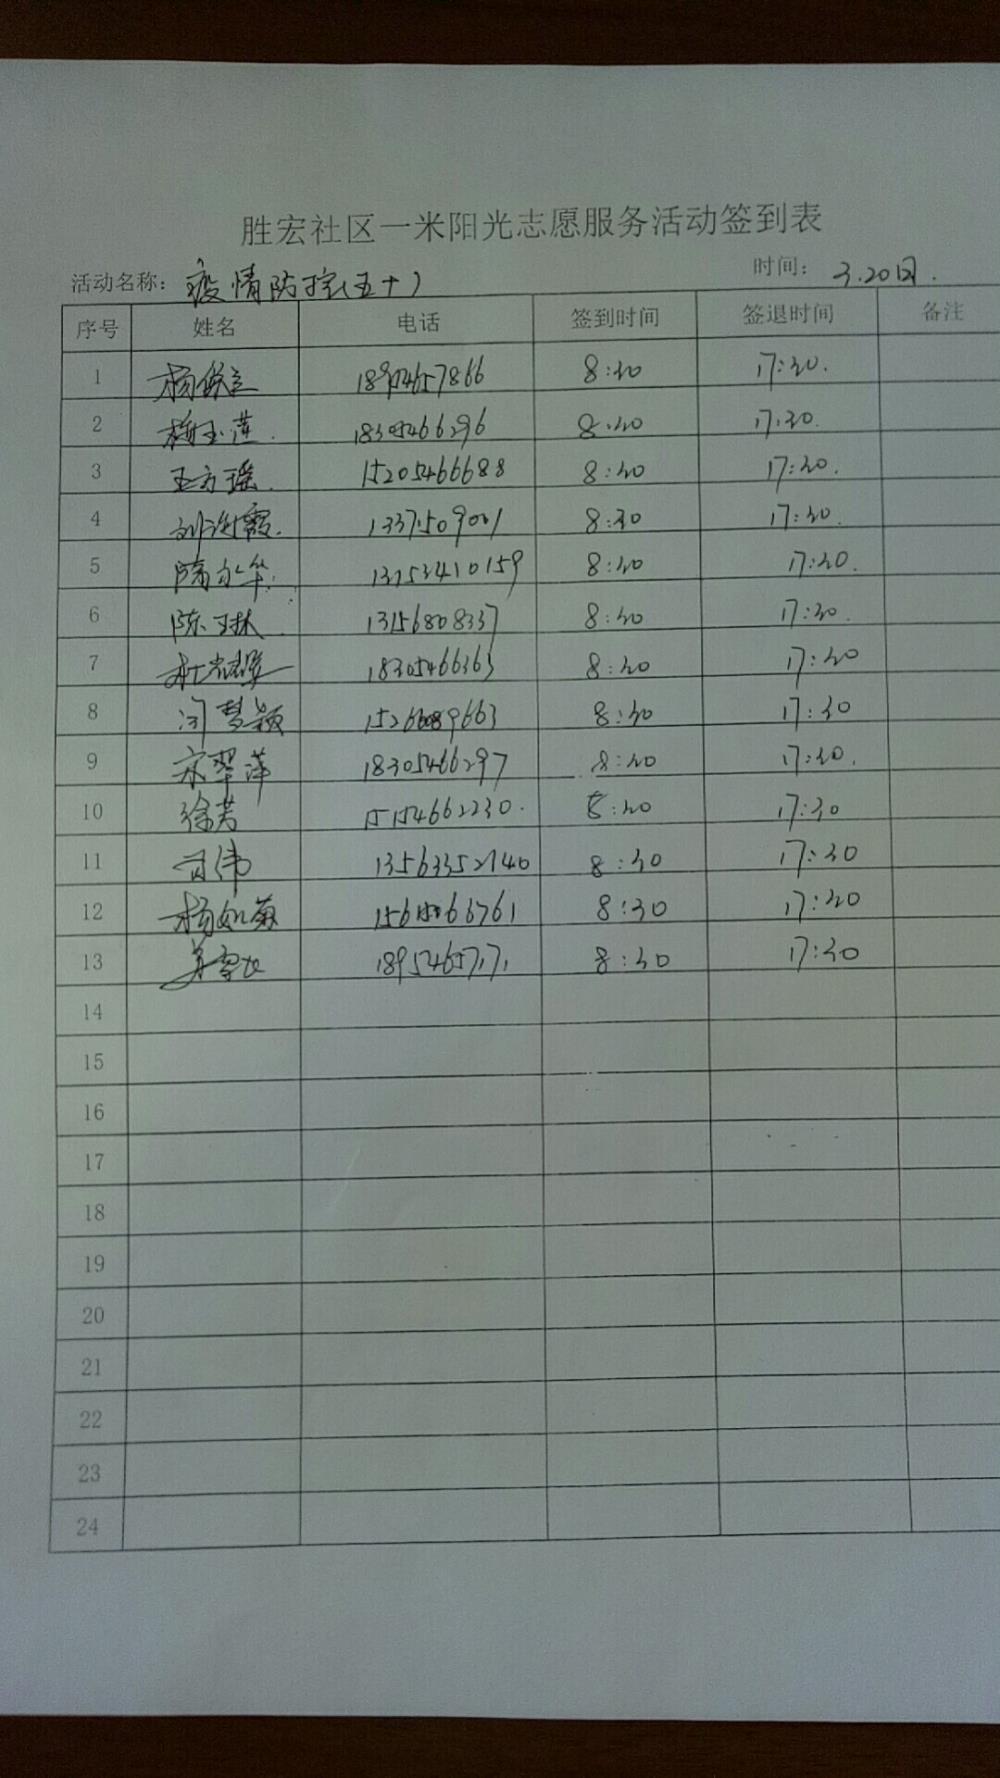 胜宏社区一米阳光志愿服务活动签到表
活动名称：疫情防控(五十) 时间：3.20日.
序号 姓名 电话 签到时间 签退时间 备注
1 杨 8:30 17:30.
2 梅玉莲. 18305466296 8:30 17:30.
3 王方瑶. 15205466688 8:30 17:30.
4 霞. 13371509001 8:30 17:30.
5 华. 13153410159 8:30 17:30.
6 陈 13156808337 8:30 17:30.
7 杜 18305466363 8:30 17:30
8 闫慧颖 15266089663 8:30 17:30
9 宋翠萍 18305466297 8:30 17:30.
10 徐芳 15154662230. 8:30 17:30
11 伟 13563352740 8:30 17:30
12 杨如菊 8:30 17:30
13 18954657171 8:30 17:30
14
15
16
17
18
19
20
21
22
23
24